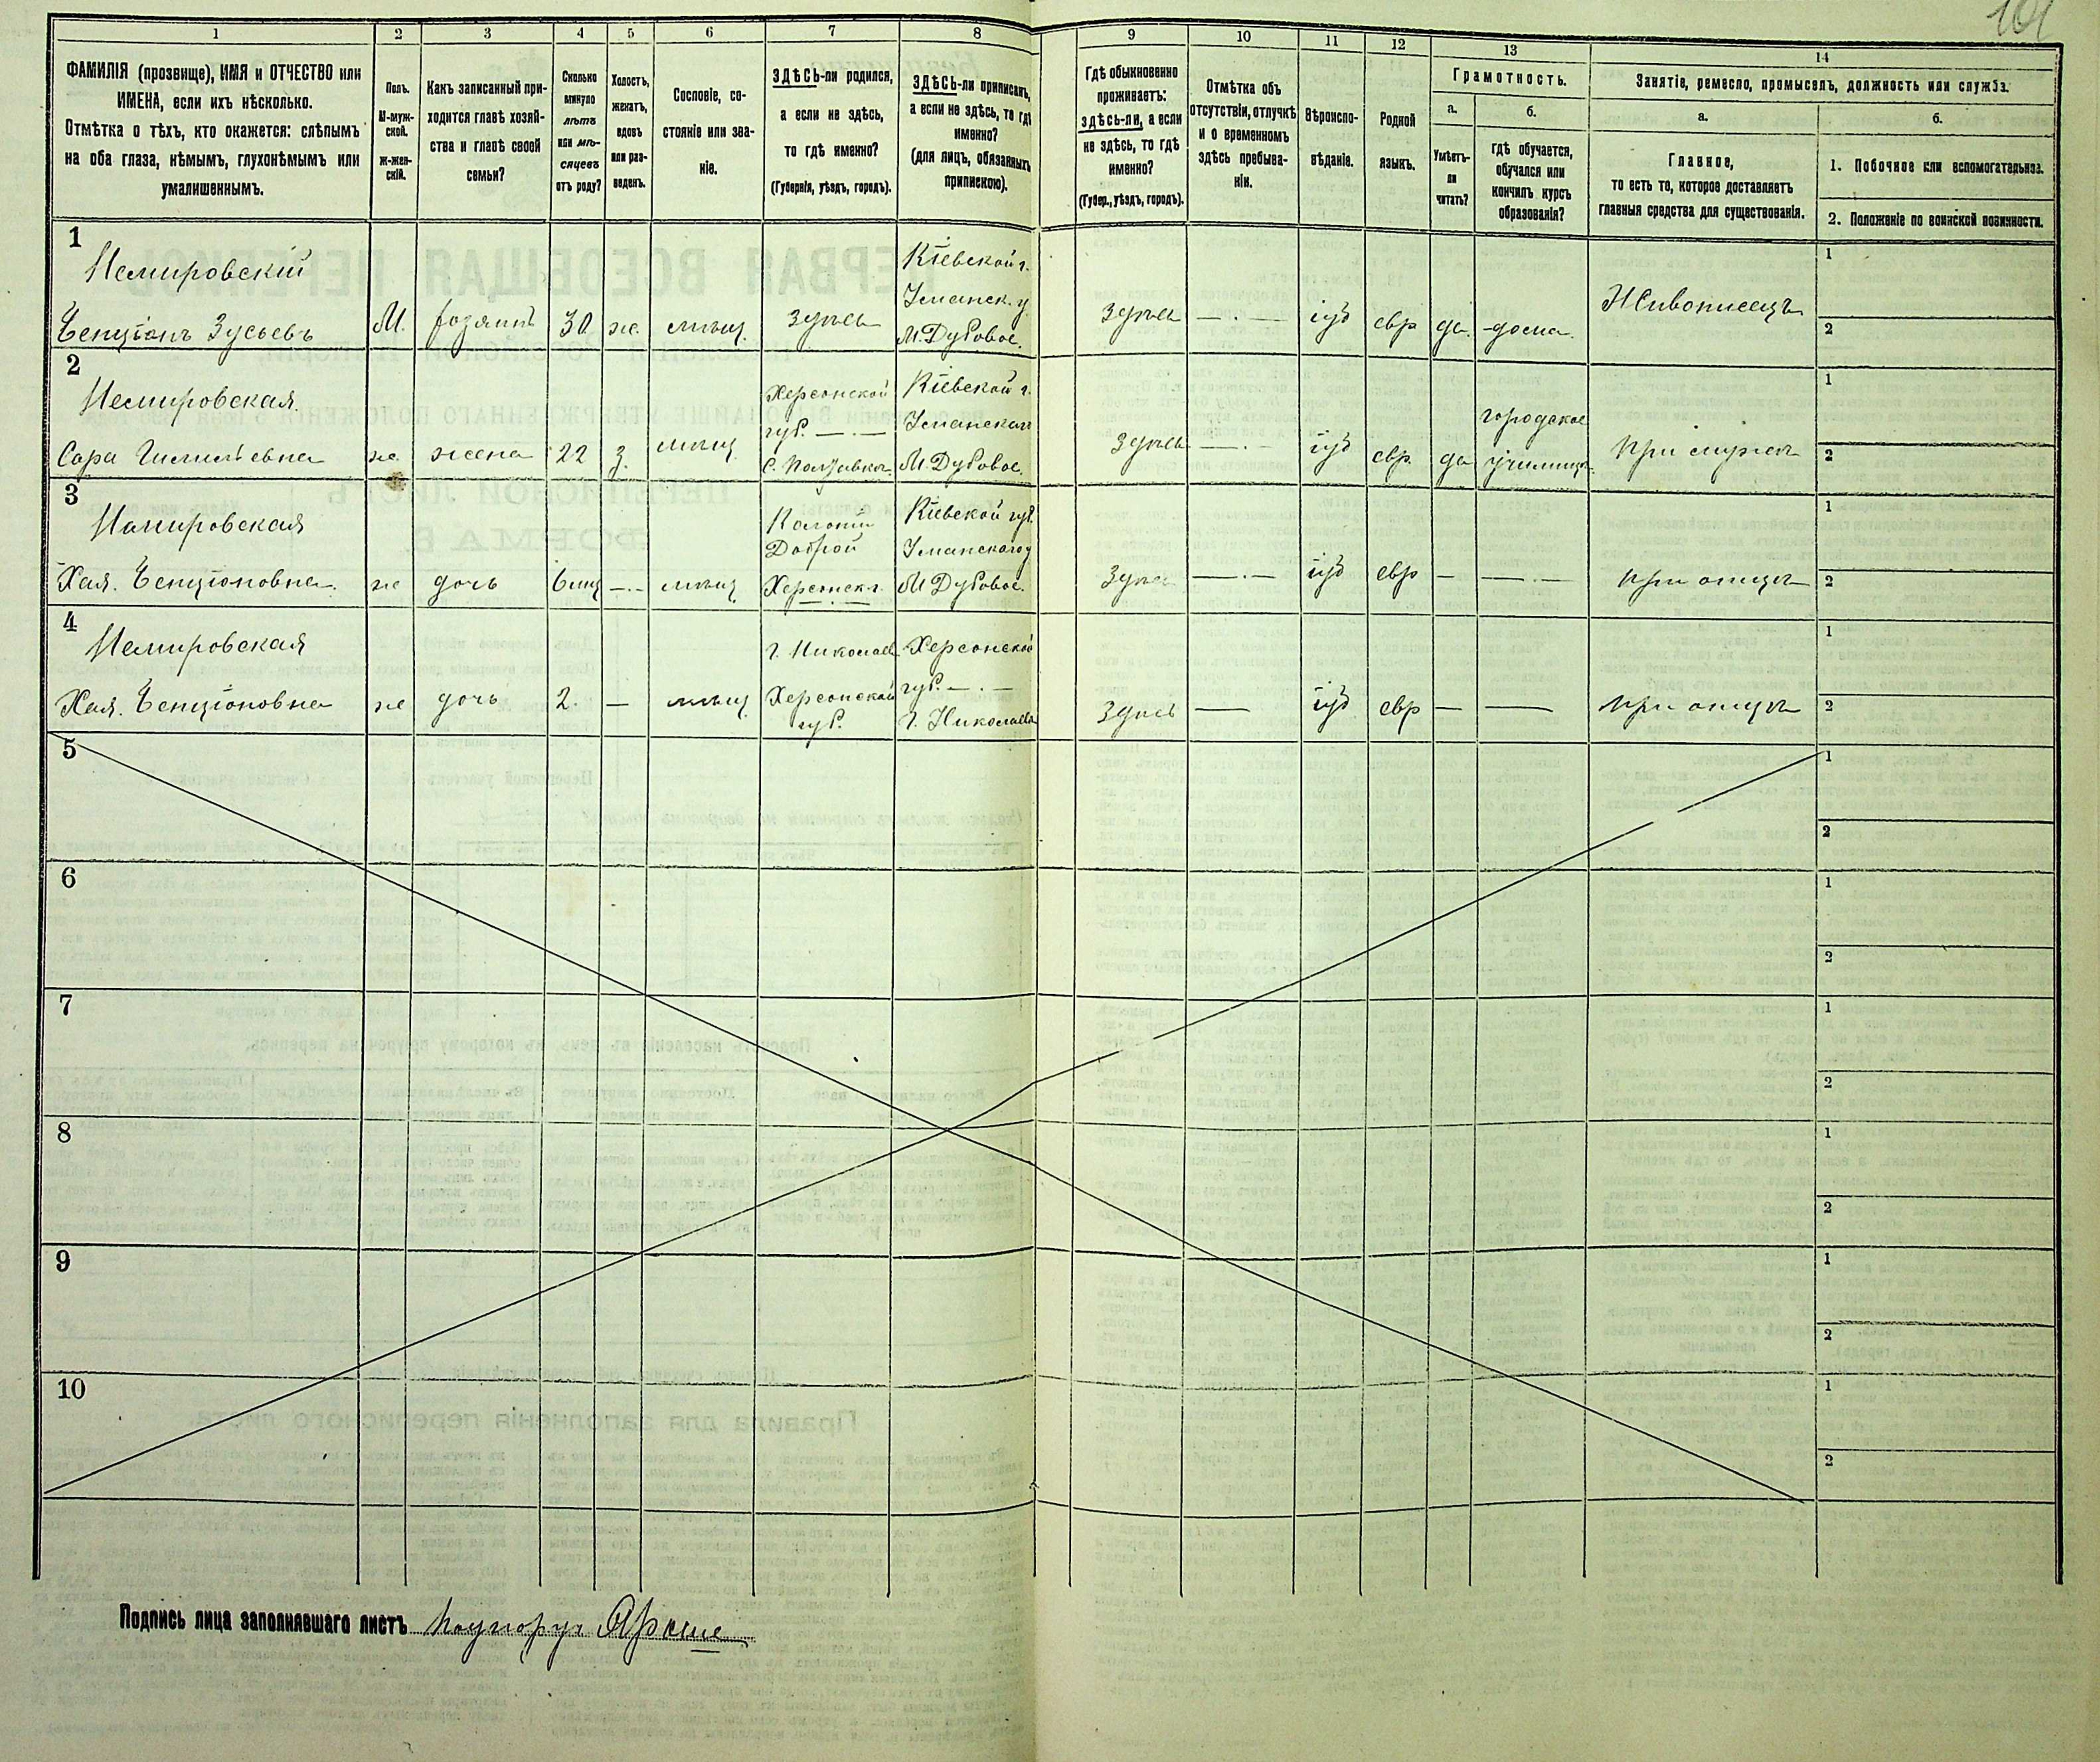 101
1 2 3 4 5 6 7 8 9 10 11 12 13 14
ФАМИЛІЯ (прозвище), ИМЯ и ОТЧЕСТВО или
ИМЕНА, если ихъ нѣсколько.
Отмѣтка о тѣхъ, кто окажется: слѣпымъ
на оба глаза, нѣмымъ, глухонѣмымъ или
умалишеннымъ.
Полъ.
М-муж-
ской.
ж-жен-
скій.
Какъ записанный при-
ходится главѣ хозяй-
ства и главѣ своей
семьи?
Сколько
минуло
лѣтъ
или мѣ-
сяцевъ
отъ роду?
Холостъ,
женатъ,
вдовъ
или раз-
веденъ.
Сословіе, со-
стояніе или зва-
ніе.
ЗДѢСЬ-ли родился,
а если не здѣсь,
то гдѣ именно?
(Губернія, уѣздъ, городъ).
ЗДѢСЬ-ли приписанъ,
а если не здѣсь, то гдѣ
именно?
(для лицъ, обязанныхъ
припискою).
Гдѣ обыкновенно
проживаетъ:
здѣсь-ли, а если
не здѣсь, то гдѣ
именно?
(Губер., уѣздъ, городъ).
Отмѣтка объ
отсутствіи, отлучкѣ
и о временномъ
здѣсь пребыва-
ніи.
Вѣроиспо-
вѣданіе.
Родной
языкъ.
Грамотность.
а.
Умѣетъ-
ли
читать?
б.
гдѣ обучается,
обучался или
кончилъ курсъ
образованія?
Занятіе, ремесло, промыселъ, должность или служба.
а.
Главное,
то есть то, которое доставляетъ
главныя средства для существованія.
б.
1. Побочное или вспомогательное.
2. Положеніе по воинской повинности.
1
Немировскій
Бенціонъ Зусьевъ
М.
хозяинъ
30
же.
мѣщ.
здѣсь
Кіевской г.
Уманск. у.
М. Дубовое.
здѣсь
— . —
іуд
евр
да.
дома.
Живописецъ
1
2
2
Немировская.
Сара
же
жена
22
з.
мѣщ.
Херсонской
губ. — . —
Кіевской г.
Уманскаго
М. Дубовое.
здѣсь
— . —
іуд
евр.
да
городское
училище.
при мужѣ
1
2
3
Немировская
Хая. Бенціоновна.
же
дочь
6 мц
— . —
мѣщ
Колоніи
Доброй
Херсонск. г.
Кіевской губ.
Уманскаго у
М Дубовое.
здѣсь
— . —
іуд
евр
—
— . —
при отцѣ
1
2
4
Немировская
Хая. Бенціоновна
же
дочь
2.
—
мѣщ
г. Николаев
Херсонской
губ.
Херсонской
губ. — . —
г. Николаева
здѣсь
—
іуд
евр
—
—
при отцѣ
1
2
5
1
2
6
1
2
7
1
2
8
1
2
9
1
2
10
1
2
Подпись лица заполнявшаго листъ